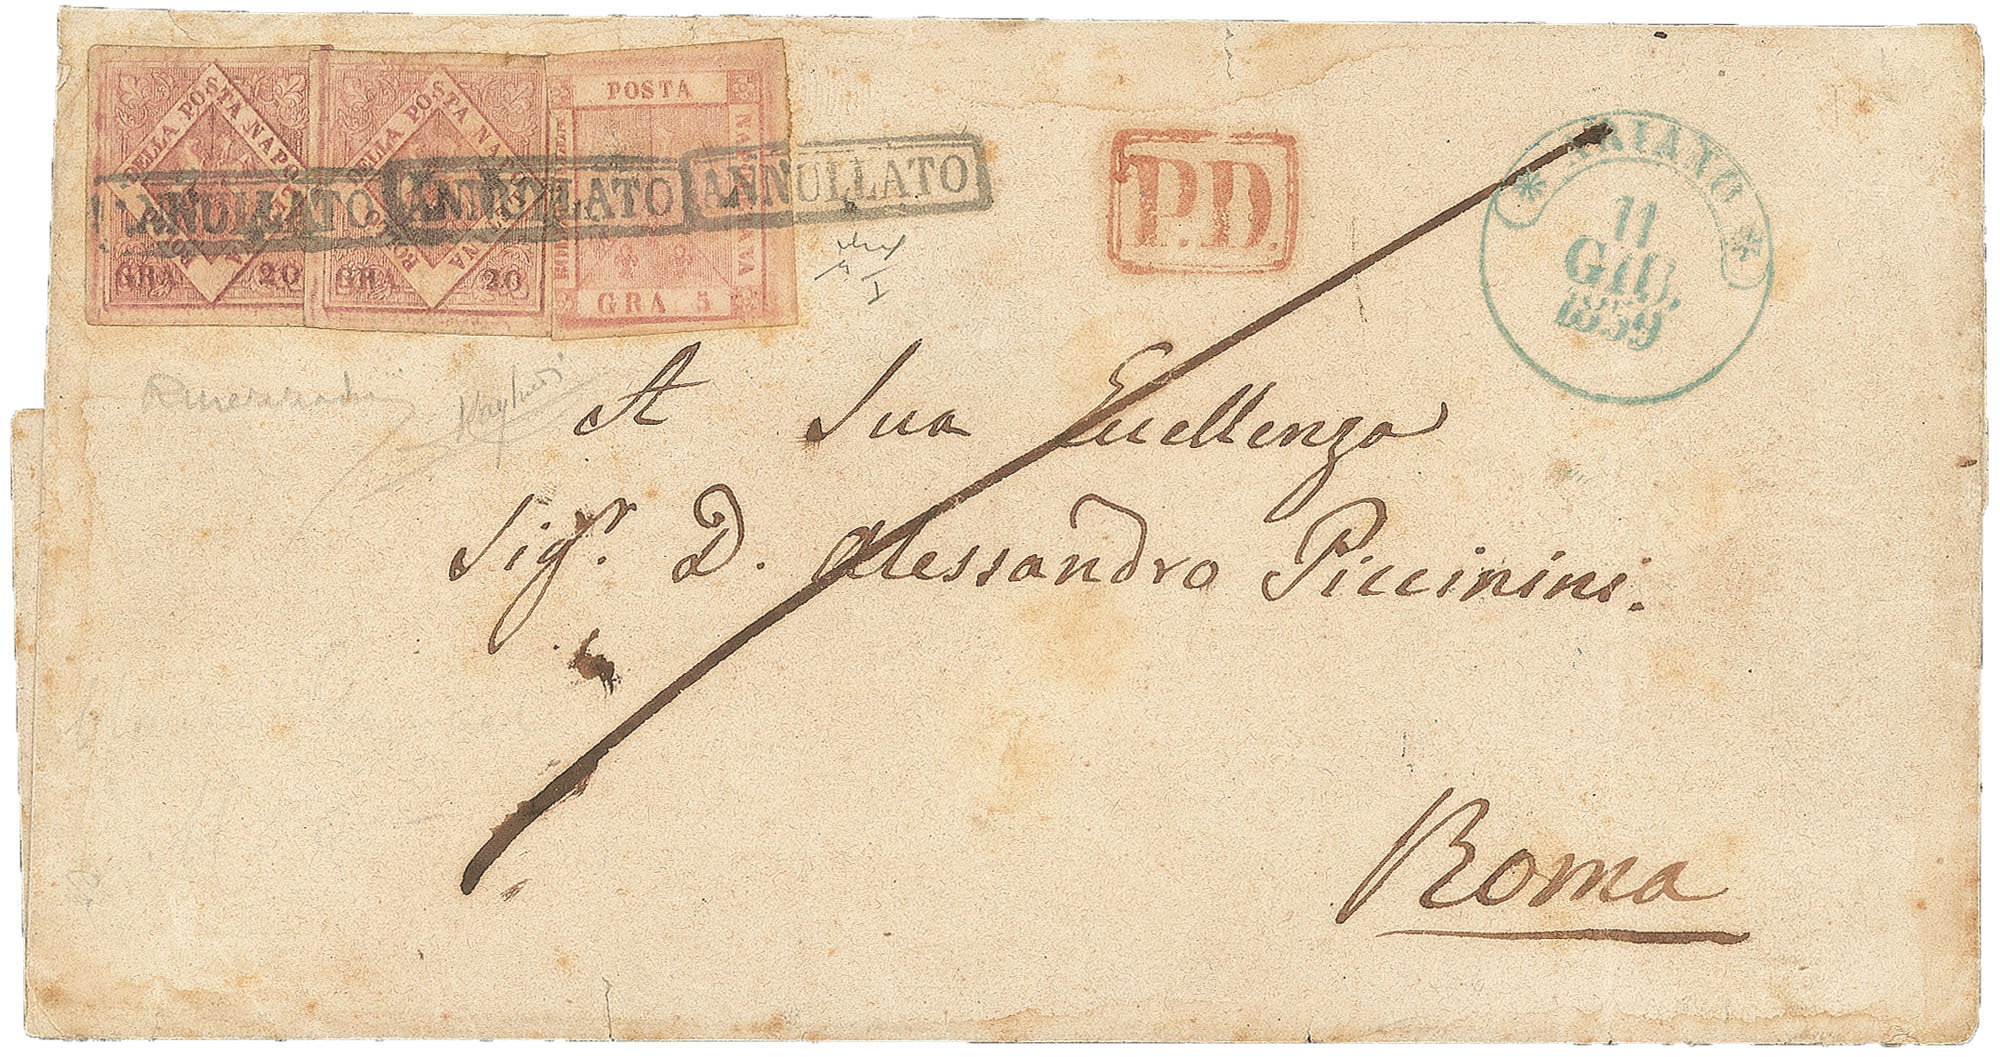 DELLA POSTA NAPO
GRA 20
DELLA POSTA NAPO
BO NA
GRA 20
POSTA
GRA 5
ANNULLATO
ANNULLATO
ANNULLATO
P.D.
ARIANO
11
GIU.
1859
A Sua Eccellenza
Sigr. D. Alessandro Piccinini.
Roma